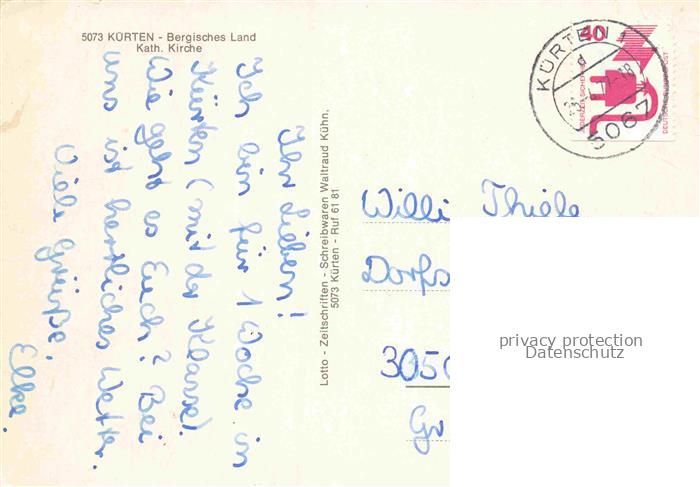 5073 KÜRTEN - Bergisches Land
Kath. Kirche
Ihr Lieben!
Ich bin für 1 Woche in
Kürten (mit der Klasse).
Wie geht es Euch? Bei
uns ist herrliches Wetter.
Viele Grüße,
Elke.
Lotto - Zeitschriften - Schreibwaren Waltraud Kühn,
5073 Kürten - Ruf 61 81
KÜRTEN 1
d
5067
40
DEUTSCHE BUNDESPOST
Willi Thiele
Dorfs
305
Gr
privacy protection
Datenschutz